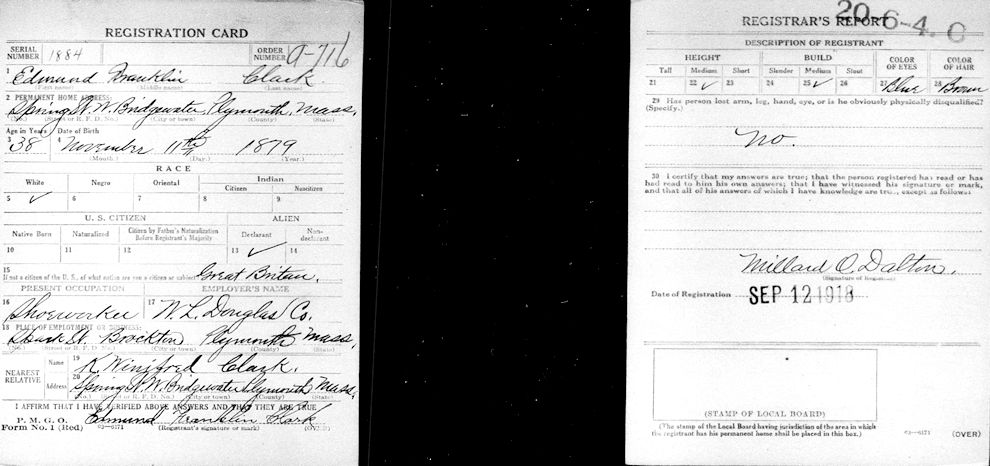 REGISTRATION CARD
SERIAL NUMBER 1884 ORDER NUMBER A-716
1 Edmund Franklin Clark
(First name) (Middle name) (Last name)
2 PERMANENT HOME ADDRESS:
Spring St. W. Bridgewater, Plymouth, Mass,
(No.) (Street or R. F. D. No.) (City or town) (County) (State)
Age in Years Date of Birth
3 38 4 November 11th 1879
(Month.) (Day.) (Year.)
RACE
White Negro Oriental Indian
Citizen Noncitizen
5 ✓ 6 7 8 9
U. S. CITIZEN ALIEN
Native Born Naturalized Citizen by Father's Naturalization Before Registrant's Majority Declarant Non-declarant
10 11 12 13 ✓ 14
15
If not a citizen of the U. S., of what nation are you a citizen or subject? Great Britain,
PRESENT OCCUPATION EMPLOYER'S NAME
16 Shoeworker 17 W. L. Douglas Co.
18 PLACE OF EMPLOYMENT OR BUSINESS:
St. Brockton Plymouth Mass,
(No.) (Street or R. F. D. No.) (City or town) (County) (State)
NEAREST RELATIVE
Name 19 K. Winifred Clark.
Address 20 Spring St. W. Bridgewater Plymouth Mass,
(No.) (Street or R. F. D. No.) (City or town) (County) (State)
I AFFIRM THAT I HAVE VERIFIED ABOVE ANSWERS AND THAT THEY ARE TRUE
P. M. G. O.
Form No. 1 (Red) 03—6171 Edmund Franklin Clark
(Registrant's signature or mark) (OVER)
20-6-4. C
REGISTRAR'S REPORT
DESCRIPTION OF REGISTRANT
HEIGHT BUILD COLOR OF EYES COLOR OF HAIR
Tall Medium Short Slender Medium Stout
21 22 ✓ 23 24 25 ✓ 26 27 Blue 28 Brown
29 Has person lost arm, leg, hand, eye, or is he obviously physically disqualified?
(Specify.)
No.
30 I certify that my answers are true; that the person registered has read or has
had read to him his own answers; that I have witnessed his signature or mark,
and that all of his answers of which I have knowledge are true, except as follows:
Millard O. Dalton.
(Signature of Registrar)
Date of Registration SEP 12 1918
(STAMP OF LOCAL BOARD)
(The stamp of the Local Board having jurisdiction of the area in which
the registrant has his permanent home shall be placed in this box.)
03—6171 (OVER)